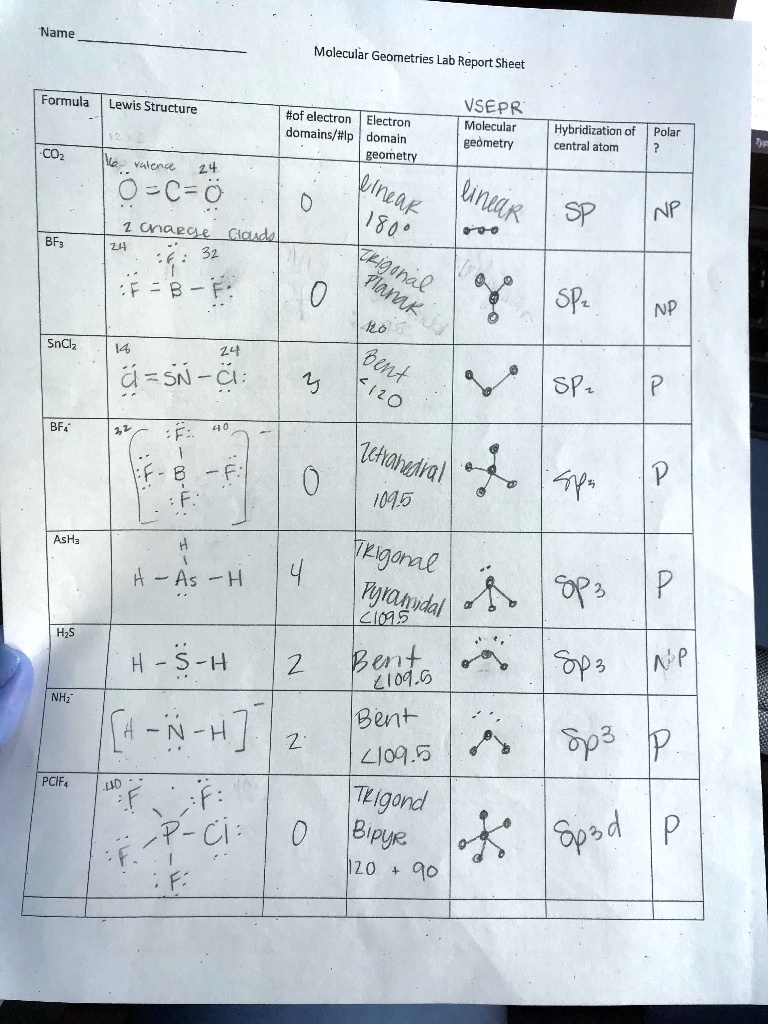 Name
Molecular Geometries Lab Report Sheet
VSEPR
Formula
Lewis Structure
#of electron
domains/#lp
Electron
domain
geometry
Molecular
geometry
Hybridization of
central atom
Polar
?
CO₂
16 valence 24
O = C = O
2 charge clouds
0
linear
180°
linear
SP
NP
BF₃
24 32
F
F = B - F
0
Trigonal
Planar
120
SP₂
NP
SnCl₂
18 24
Cl = SN - Cl
3
Bent
<120
SP₂
P
BF₄⁻
32 40
F
[F - B - F]⁻
F
0
Tetrahedral
109.5
P
AsH₃
H
H - As - H
4
TRigonal
Pyramidal
<109.5
SP3
P
H₂S
H - S - H
2
Bent
<109.5
Sp3
NP
NH₂⁻
[H - N - H]⁻
2
Bent
<109.5
Sp3
P
PClF₄
40
F F
P - Cl
F
F
0
TRigond
Bipyr
120 + 90
Sp3d
P